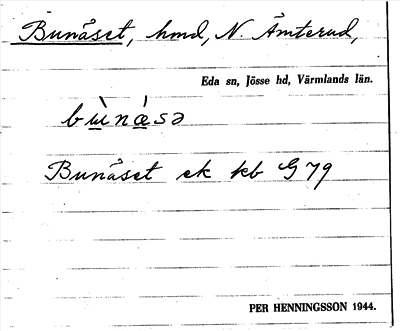 Bunåset, hmd, N. Ämterud,
Eda sn, Jösse hd, Värmlands län.
bùnǻsə
Bunåset ek kb G 79
PER HENNINGSSON 1944.